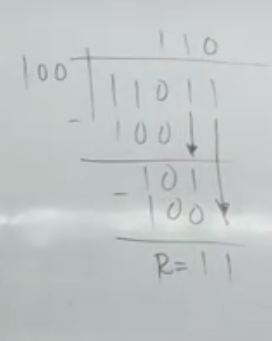 110
100 11011
- 100
- 101
100
R=11